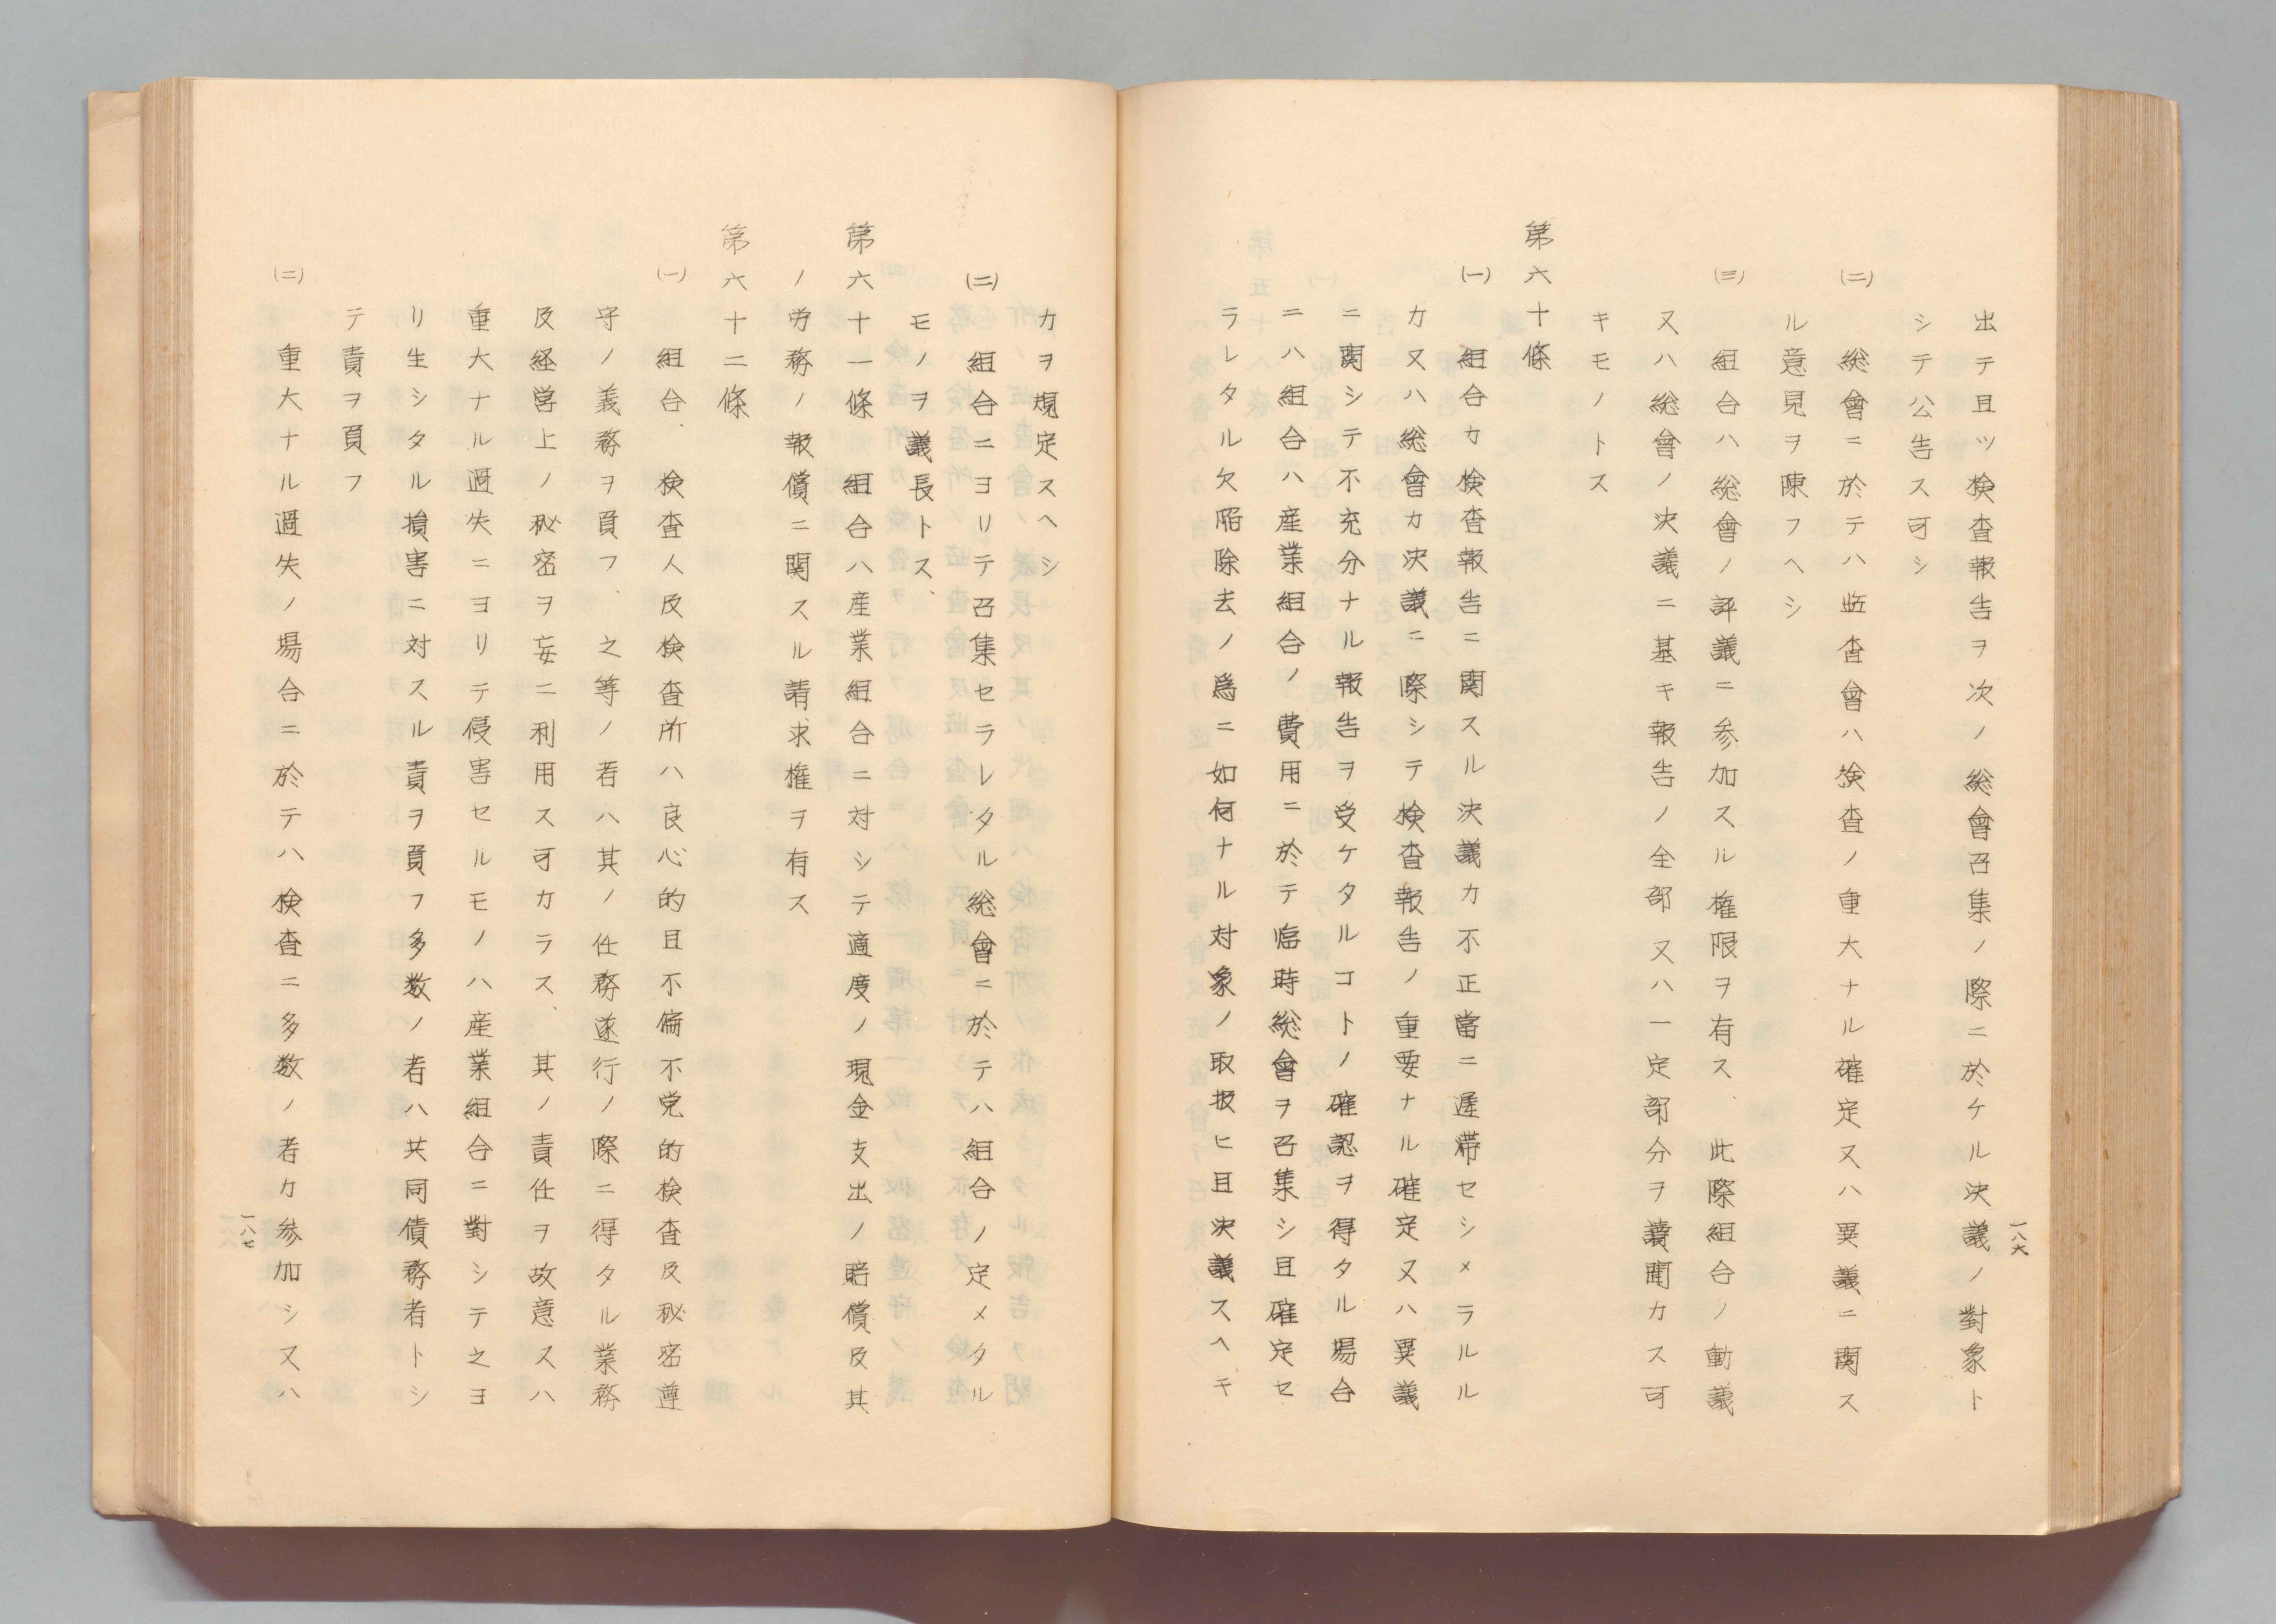 一八六
出テ且ツ検査報告ヲ次ノ総會召集ノ際ニ於ケル決議ノ對象ト
シテ公告ス可シ
(二) 総會ニ於テハ監査會ハ検査ノ重大ナル確定又ハ異議ニ関ス
ル意見ヲ陳フヘシ
(三) 組合ハ総會ノ評議ニ参加スル権限ヲ有ス、此際組合ノ動議
又ハ総會ノ決議ニ基キ報告ノ全部又ハ一定部分ヲ讀聞カス可
キモノトス
第六十條
(一) 組合カ検査報告ニ関スル決議カ不正當ニ遅滞セシメラルル
カ又ハ総會カ決議ニ際シテ検査報告ノ重要ナル確定又ハ異議
ニ関シテ不充分ナル報告ヲ受ケタルコトノ確認ヲ得タル場合
ニハ組合ハ産業組合ノ費用ニ於テ臨時総會ヲ召集シ且確定セ
ラレタル欠陥除去ノ為ニ如何ナル対象ノ取扱ヒ且決議スヘキ
カヲ規定スヘシ
(二) 組合ニヨリテ召集セラレタル総會ニ於テハ組合ノ定メタル
モノヲ議長トス、
第六十一條 組合ハ産業組合ニ対シテ適度ノ現金支出ノ賠償及其
ノ労務ノ報償ニ関スル請求権ヲ有ス
第六十二條
(一) 組合、検査人及検査所ハ良心的且不偏不党的検査及秘密遵
守ノ義務ヲ負フ、之等ノ者ハ其ノ任務遂行ノ際ニ得タル業務
及経営上ノ秘密ヲ妄ニ利用ス可カラス、其ノ責任ヲ故意スハ
重大ナル過失ニヨリテ侵害セルモノハ産業組合ニ對シテ之ヨ
リ生シタル損害ニ対スル責ヲ負フ多数ノ者ハ共同債務者トシ
テ責ヲ負フ
(二) 重大ナル過失ノ場合ニ於テハ検査ニ多数ノ者カ参加シ又ハ
一八七